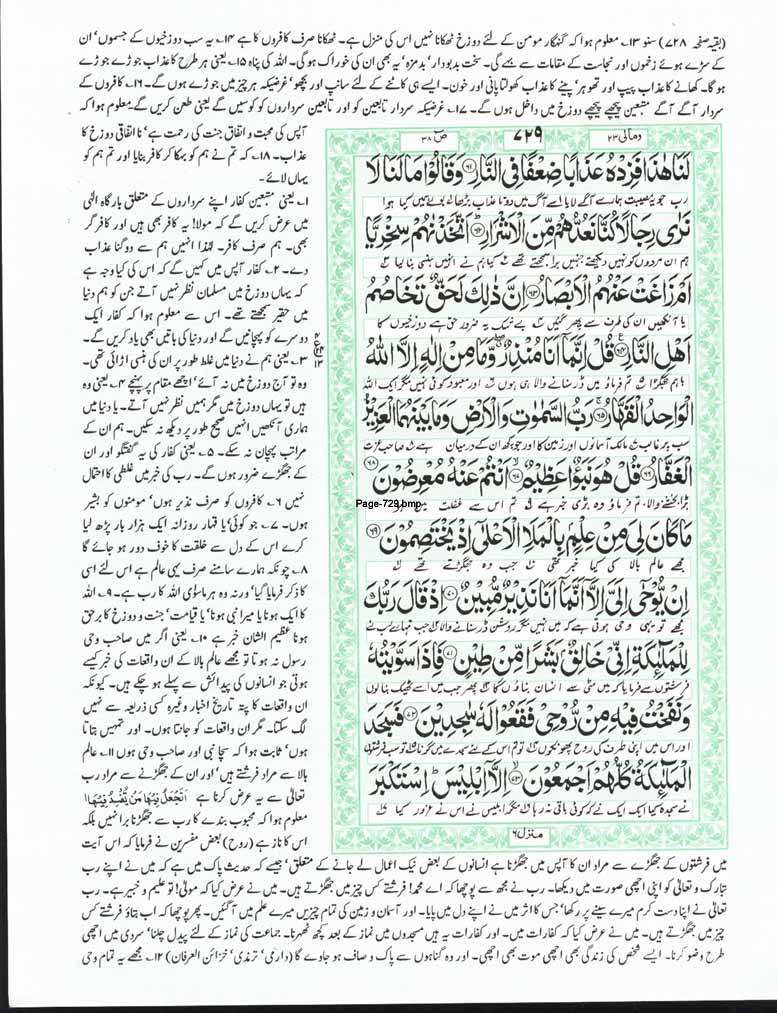 (بقیہ صفحہ ۷۲۸) سنو ۱۳۔ معلوم ہوا کہ گنہگار مومن کے لئے دوزخ ٹھکانا نہیں اس کی منزل ہے۔ ٹھکانا صرف کافروں کا ہے ۱۴۔ یہ سب دوزخیوں کے جسموں' ان
کے سڑے ہوئے زخموں اور نجاست کے مقامات سے بہے گی۔ سخت بدبودار' بدمزہ' یہ بھی ان کی خوراک ہو گی۔ اللہ کی پناہ ۱۵۔ یعنی ہر طرح کا عذاب جوڑے جوڑے
ہو گا۔ کھانے کا عذاب پیپ اور تھوہر' پینے کا عذاب کھولتا پانی اور خون۔ ایسے ہی کاٹنے کے لئے سانپ اور بچھو' غرضیکہ ہر چیز میں جوڑے ہوں گے۔ ۱۶۔ کافروں کے
سردار آگے آگے متبعین پیچھے پیچھے دوزخ میں داخل ہوں گے۔ ۱۷۔ غرضیکہ سردار تابعین کو اور تابعین سرداروں کو کوسیں گے یعنی طعن کریں گے معلوم ہوا کہ
آپس کی محبت و اتفاق جنت کی رحمت ہے' نا اتفاقی دوزخ کا
عذاب۔ ۱۸۔ کہ تم نے ہم کو بہکا کر کافر بنایا اور تم ہم کو
یہاں لائے۔
۱۔ یعنی متبعین کفار اپنے سرداروں کے متعلق بارگاہ الٰہی
میں عرض کریں گے کہ مولا! یہ کافر بھی ہیں اور کافر گر
بھی۔ ہم صرف کافر۔ لہٰذا انہیں ہم سے دوگنا عذاب
دے۔ ۲۔ کفار آپس میں کہیں گے کہ اس کی کیا وجہ ہے
کہ یہاں دوزخ میں مسلمان نظر نہیں آتے جن کو ہم دنیا
میں حقیر سمجھتے تھے۔ اس سے معلوم ہوا کہ کفار ایک
دوسرے کو پہچانیں گے اور دنیا کی باتیں بھی یاد کریں گے۔
۳۔ یعنی ہم نے دنیا میں غلط طور پر ان کی ہنسی اڑائی تھی۔
وہ تو آج دوزخ میں نہ آئے' اچھے مقام پر پہنچے ۴۔ یعنی وہ
ہیں تو یہاں دوزخ میں مگر ہمیں نظر نہیں آتے۔ یا دنیا میں
ہماری آنکھیں انہیں صحیح طور پر دیکھ نہ سکیں۔ ہم ان کے
مراتب پہچان نہ سکے۔ ۵۔ یعنی کفار کی یہ گفتگو اور ان
کے جھگڑے ضرور ہوں گے۔ رب کی خبر میں غلطی کا احتمال
نہیں ۶۔ کافروں کو صرف نذیر ہوں' مومنوں کو بشیر
ہوں۔ ۷۔ جو کوئی' یا قہار روزانہ ایک ہزار بار پڑھ لیا
کرے اس کے دل سے خلقت کا خوف دور ہو جائے گا
۸۔ چونکہ ہمارے سامنے صرف یہی عالم ہے اس لئے اسی
کا ذکر فرمایا گیا' ورنہ وہ ہر ماسوی اللہ کا رب ہے۔ ۹۔ اللہ
کا ایک ہونا یا میرا نبی ہونا' یا قیامت' جنت و دوزخ کا برحق
ہونا عظیم الشان خبر ہے ۱۰۔ یعنی اگر میں صاحب وحی
رسول نہ ہوتا تو مجھے عالم بالا کے ان واقعات کی خبر کیسے
ہوتی جو انسانوں کی پیدائش سے پہلے ہو چکے ہیں۔ کیونکہ
ان واقعات کا پتہ تاریخ اخبار وغیرہ کسی ذریعہ سے نہیں
لگ سکتا۔ مگر ان واقعات کو جانتا ہوں۔ اور تمہیں بتاتا
ہوں' ثابت ہوا کہ سچا نبی اور صاحب وحی ہوں ۱۱۔ عالم
بالا سے مراد فرشتے ہیں' اور ان کے جھگڑنے سے مراد رب
تعالٰی سے یہ عرض کرنا ہے اَتَجْعَلُ فِیْهَا مَنْ یُّفْسِدُ فِیْهَا
معلوم ہوا کہ محبوب بندے کا رب سے جھگڑنا برا نہیں بلکہ
اس کا ناز ہے (روح) بعض مفسرین نے فرمایا کہ اس آیت
ومالی ۲۳
۷۲۹
ص ۳۸
لَنَا هٰذَا فَزِدْهُ عَذَابًا ضِعْفًا فِی النَّارِ ۶۱ وَقَالُوْا مَا لَنَا لَا
رب جو یہ مصیبت ہمارے آگے لایا اسے آگ میں دونا عذاب بڑھا ۱ اور بولے ہمیں کیا ہوا
نَرٰی رِجَالًا کُنَّا نَعُدُّهُمْ مِّنَ الْاَشْرَارِ ۶۲ اَتَّخَذْنٰهُمْ سِخْرِیًّا
ہم ان مردوں کو نہیں دیکھتے جنہیں برا سمجھتے تھے ۲ کیا ہم نے انہیں ہنسی بنا لیا ۳
اَمْ زَاغَتْ عَنْهُمُ الْاَبْصَارُ ۶۳ اِنَّ ذٰلِکَ لَحَقٌّ تَخَاصُمُ
یا آنکھیں ان کی طرف سے پھر گئیں ۴ بے شک یہ ضرور حق ہے دوزخیوں کا
اَهْلِ النَّارِ ۶۴ قُلْ اِنَّمَاۤ اَنَا مُنْذِرٌ وَّمَا مِنْ اِلٰهٍ اِلَّا اللّٰهُ
باہم جھگڑا ۵ تم فرماؤ میں ڈر سنانے والا ہی ہوں ۶ اور معبود کوئی نہیں مگر ایک اللہ
الْوَاحِدُ الْقَهَّارُ ۶۵ رَبُّ السَّمٰوٰتِ وَالْاَرْضِ وَمَا بَیْنَهُمَا الْعَزِیْزُ
سب پر غالب ۷ مالک آسمانوں اور زمین کا اور جو کچھ ان کے درمیان ہے ۸ صاحب عزت
الْغَفَّارُ ۶۶ قُلْ هُوَ نَبَؤٌا عَظِیْمٌ ۶۷ اَنْتُمْ عَنْهُ مُعْرِضُوْنَ ۶۸
بڑا بخشنے والا، تم فرماؤ وہ بڑی خبر ہے ۹ تم اس سے غفلت میں ہو
Page-729.bmp
مَا کَانَ لِیَ مِنْ عِلْمٍ بِالْمَلَاِ الْاَعْلٰۤی اِذْ یَخْتَصِمُوْنَ ۶۹
مجھے عالم بالا کی کیا خبر تھی ۱۰ جب وہ جھگڑتے تھے ۱۱
اِنْ یُّوْحٰۤی اِلَیَّ اِلَّاۤ اَنَّمَاۤ اَنَا نَذِیْرٌ مُّبِیْنٌ ۷۰ اِذْ قَالَ رَبُّکَ
مجھے تو یہی وحی ہوتی ہے کہ میں نہیں مگر روشن ڈر سنانے والا ۱۲ جب تمہارے رب نے
لِلْمَلٰٓئِکَةِ اِنِّیْ خَالِقٌۢ بَشَرًا مِّنْ طِیْنٍ ۷۱ فَاِذَا سَوَّیْتُهٗ
فرشتوں سے فرمایا کہ میں مٹی سے انسان بناؤں گا پھر جب میں اسے ٹھیک بنا لوں
وَنَفَخْتُ فِیْهِ مِنْ رُّوْحِیْ فَقَعُوْا لَهٗ سٰجِدِیْنَ ۷۲ فَسَجَدَ
اور اس میں اپنی طرف کی روح پھونکوں تو تم اس کے لئے سجدے میں گرنا تو سب فرشتوں
الْمَلٰٓئِکَةُ کُلُّهُمْ اَجْمَعُوْنَ ۷۳ اِلَّاۤ اِبْلِیْسَ اِسْتَکْبَرَ
نے سجدہ کیا ایک ایک نے کہ کوئی باقی نہ رہا مگر ابلیس نے اس نے غرور کیا
منزل ۶
میں فرشتوں کے جھگڑے سے مراد ان کا آپس میں جھگڑنا ہے انسانوں کے بعض نیک اعمال لے جانے کے متعلق' جیسے کہ حدیث پاک میں ہے کہ میں نے اپنے رب
تبارک و تعالٰی کو اپنی اچھی صورت میں دیکھا۔ رب نے مجھ سے پوچھا کہ اے محمد! فرشتے کس چیز میں جھگڑتے ہیں۔ میں نے عرض کیا کہ مولیٰ! تو علیم و خبیر ہے۔ رب
تعالٰی نے اپنا دست کرم میرے سینے پر رکھا' جس کا اثر میں نے اپنے دل میں پایا۔ اور آسمان و زمین کی تمام چیزیں میرے علم میں آ گئیں۔ پھر پوچھا کہ اب بتاؤ فرشتے کس
چیز میں جھگڑتے ہیں۔ میں نے عرض کیا کہ کفارات میں۔ اور کفارات یہ ہیں مسجدوں میں نماز کے بعد کچھ ٹھہرنا۔ جماعت کی نماز کے لئے پیدل چلنا' سردی میں اچھی
طرح وضو کرنا۔ ایسے شخص کی زندگی بھی اچھی موت بھی اچھی۔ اور وہ گناہوں سے پاک و صاف ہو جاوے گا (دارمی' ترمذی' خزائن العرفان) ۱۲۔ مجھے یہ تمام وحی